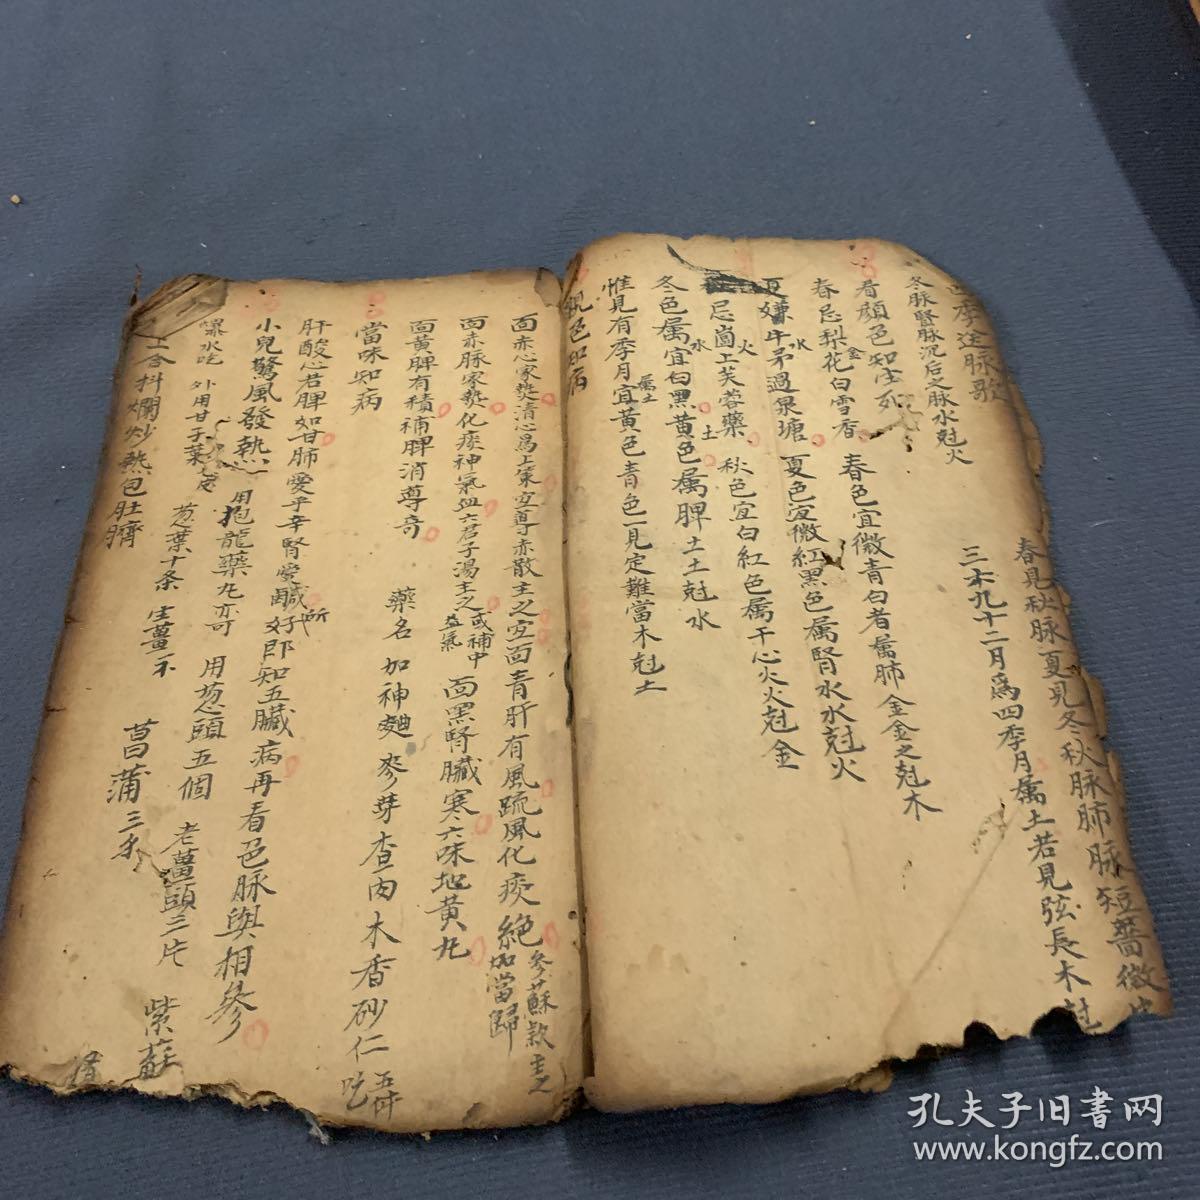 季送脉歌
春見秋脉夏見冬秋脉肺脉短薔微
三六九十二月為四季月属土若見弦長木尅
冬脉腎脉沉后之脉水尅火
看顔色知生死
春忌梨花白雪香 春色宜微青白者属肺金金之尅木
金
夏嫌牛弟過泉塘 夏色宜微紅黑色属腎水水尅火
水
忌崗上芙蓉藥 秋色宜白紅色属于心火火尅金
火
冬色属宜白黑黄色属脾土土尅水
水 土
惟見有季月宜黄色青色一見定難當木尅土
属土
視色知病
面赤心家熱清心為上策宜導赤散主之宜面青肝有風疏風化痰絶 參蘇款主之
加當歸
面赤脉家熱化痰神氣血六君子湯主之 或補中益氣 面黑腎臟寒六味地黄九
面黄脾有積補脾消導奇
藥名 加神麯 麥芽查肉木香砂仁 五件 吃
當味知病
肝酸心若脾如甘肺愛乎辛腎鹹 所 好即知五臟病再看色脉與相參
小兒驚風發熱 用抱龍藥九亦可 用葱頭五個 老薑頭三片 紫蘇
水吃 外用甘子葉 葱葉十条 生薑不 菖蒲三
合抖爛炒熱包肚臍
孔夫子旧書网
www.kongfz.com